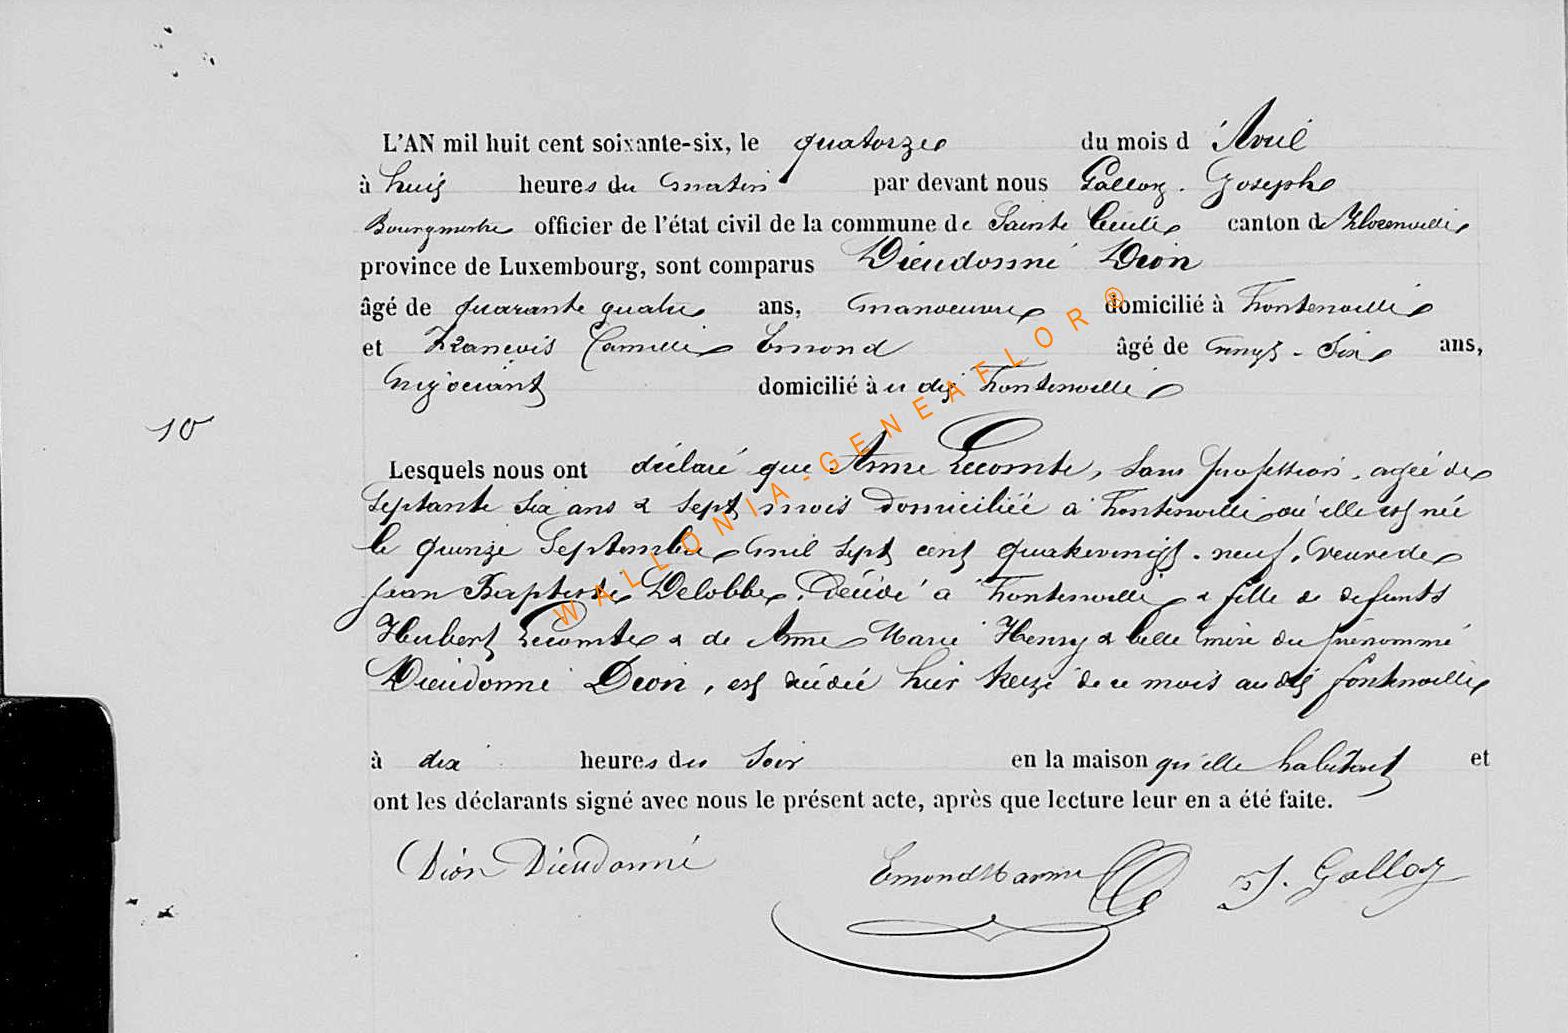 L'AN mil huit cent soixante-six, le quatorze du mois d'Avril
à huit heures du matin par devant nous Galloy Joseph
Bourgmestre officier de l'état civil de la commune de Sainte Cécile canton de Florenville
province de Luxembourg, sont comparus Dieudonné Dion
âgé de quarante quatre ans, manoeuvre domicilié à Fontenoille
et François Camille Emond âgé de vingt-six ans,
négociant domicilié à u dit Fontenoille
10
Lesquels nous ont déclaré que Anne Lecomte, sans profession, agée de
septante six ans & sept mois domiciliée à Fontenoille où elle est née
le quinze Septembre mil sept cent quatrevingt-neuf, veuve de
Jean Baptiste Delobbe, décédé à Fontenoille & fille de defunts
Hubert Lecomte & de Anne Marie Henry & belle mère du prénommé
Dieudonné Dion, est décédée hier treize de ce mois au dit fontenoille
à dix heures du soir en la maison qu'elle habitait et
ont les déclarants signé avec nous le présent acte, après que lecture leur en a été faite.
Dion Dieudonné Emond J. Galloy
WALLONIA-GENEAFLOR®